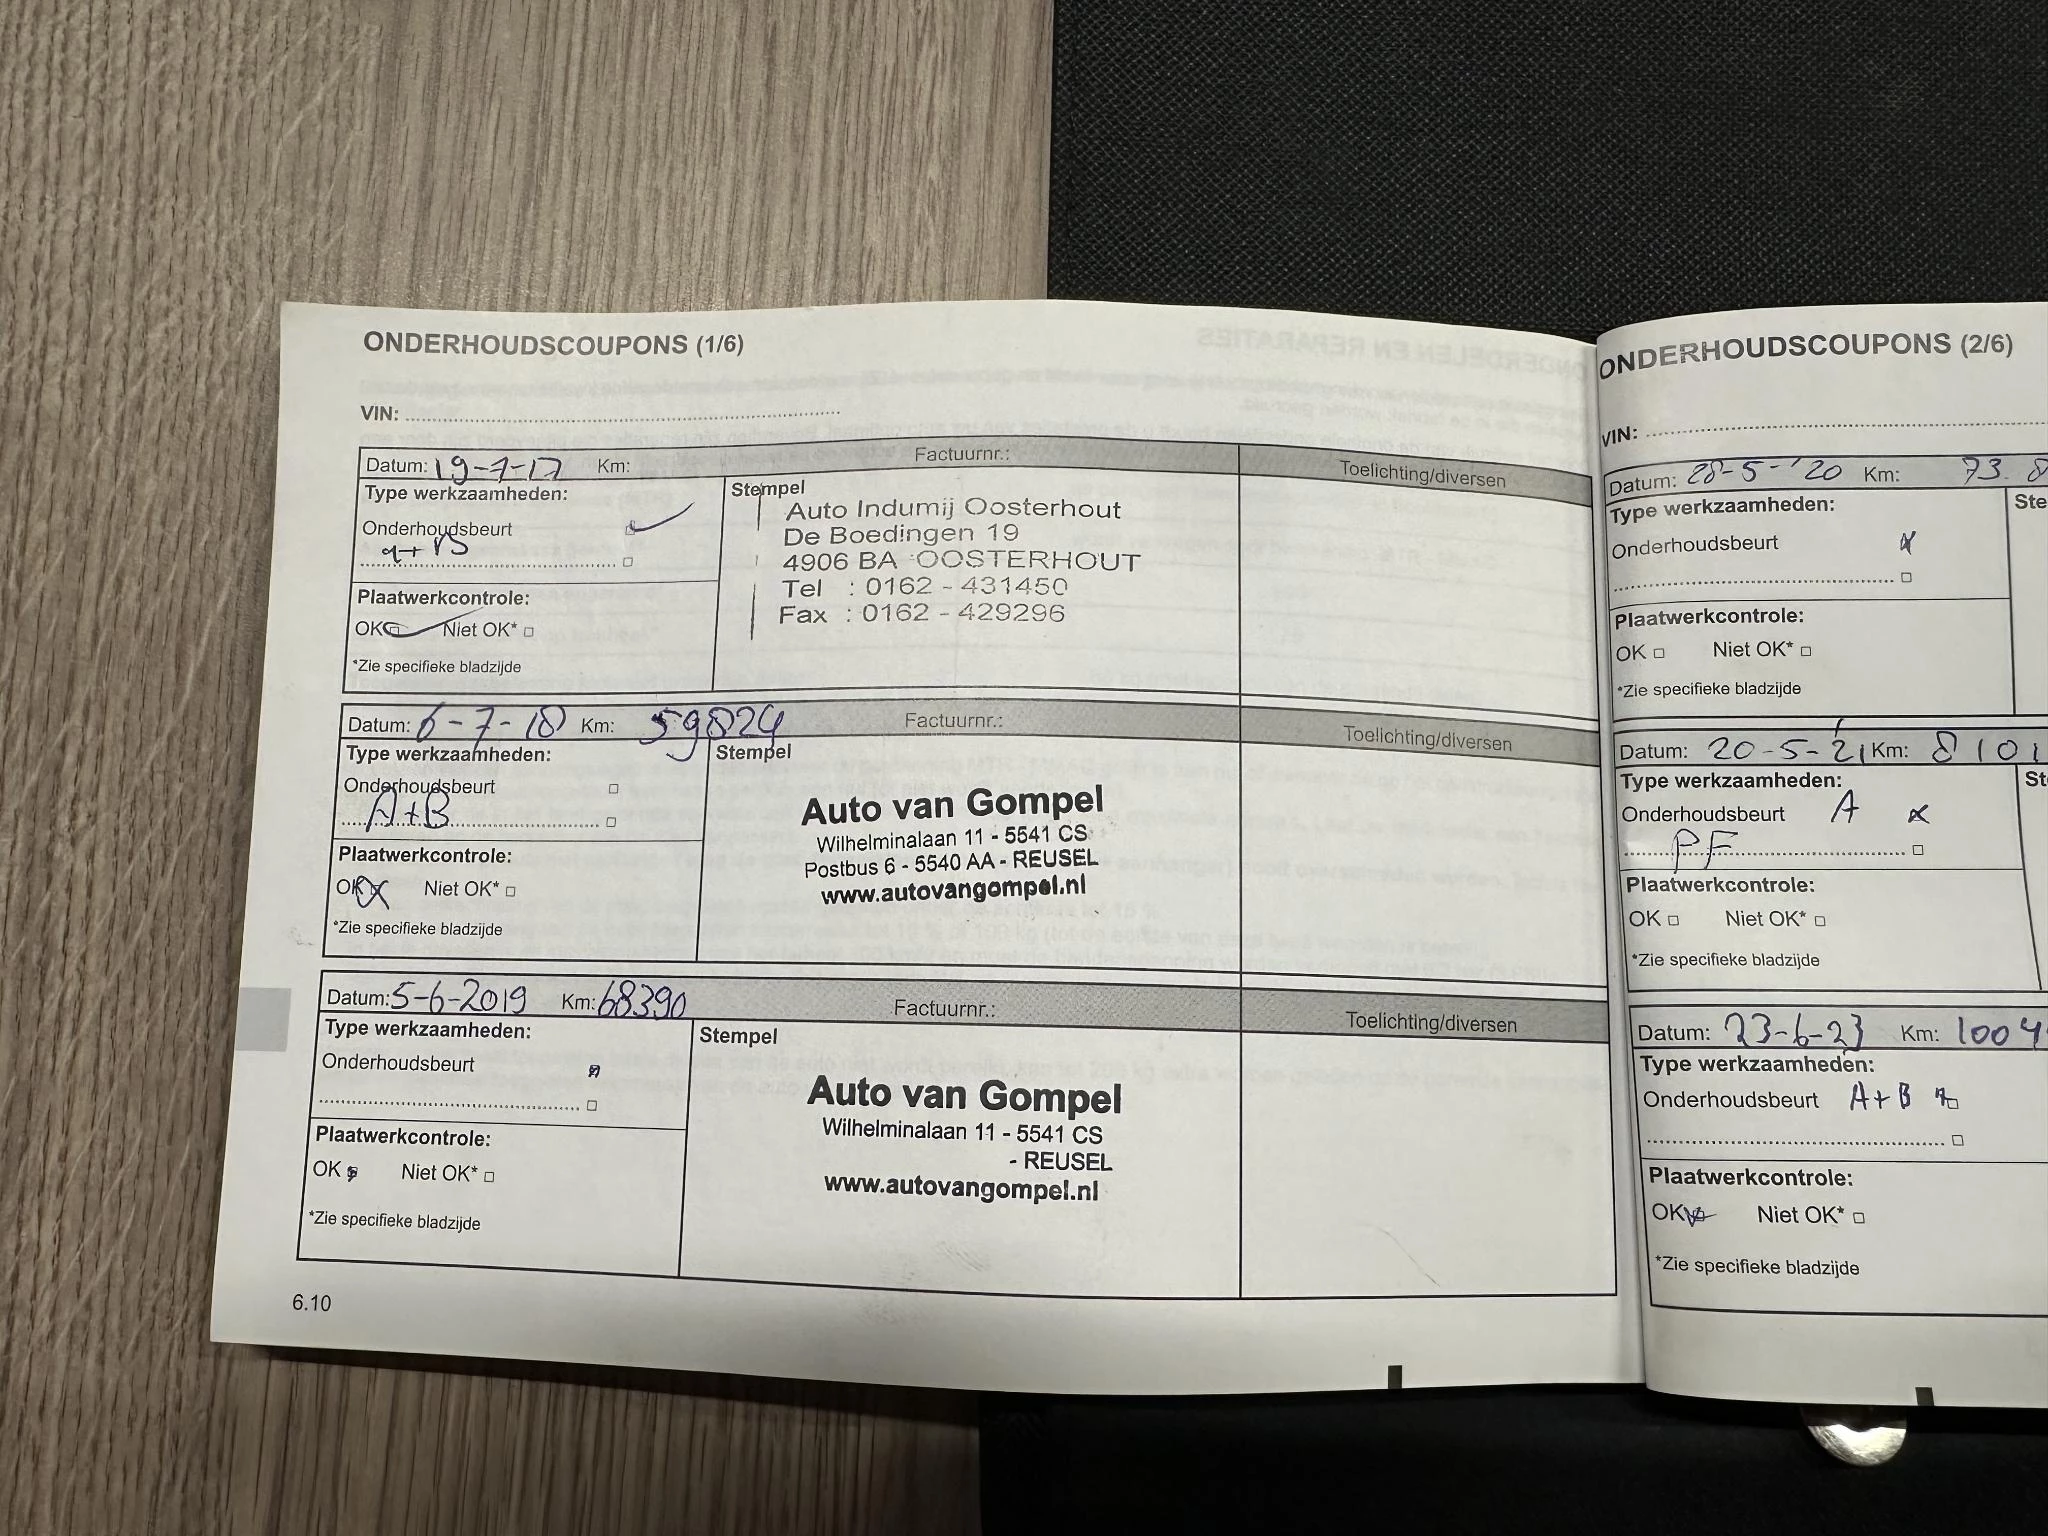 ONDERHOUDSCOUPONS (1/6)
VIN:
Datum: 19-7-17 Km: Factuurnr.: Toelichting/diversen
Type werkzaamheden:
Stempel
Onderhoudsbeurt
Auto Indumij Oosterhout
De Boedingen 19
4906 BA OOSTERHOUT
Tel : 0162 - 431450
Fax : 0162 - 429296
Plaatwerkcontrole:
OK Niet OK*
*Zie specifieke bladzijde
Datum: 6-7-18 Km: 59824 Factuurnr.: Toelichting/diversen
Type werkzaamheden:
Stempel
Onderhoudsbeurt
A+B
Auto van Gompel
Wilhelminalaan 11 - 5541 CS
Postbus 6 - 5540 AA - REUSEL
www.autovangompel.nl
Plaatwerkcontrole:
OK Niet OK*
*Zie specifieke bladzijde
Datum: 5-6-2019 Km: 68390 Factuurnr.: Toelichting/diversen
Type werkzaamheden:
Stempel
Onderhoudsbeurt
Auto van Gompel
Wilhelminalaan 11 - 5541 CS
- REUSEL
www.autovangompel.nl
Plaatwerkcontrole:
OK Niet OK*
*Zie specifieke bladzijde
6.10
ONDERHOUDSCOUPONS (2/6)
VIN:
Datum: 28-5-'20 Km: 73.8
Type werkzaamheden:
Ste
Onderhoudsbeurt
Plaatwerkcontrole:
OK Niet OK*
*Zie specifieke bladzijde
Datum: 20-5-21 Km: 8101
Type werkzaamheden:
St
Onderhoudsbeurt A
PF
Plaatwerkcontrole:
OK Niet OK*
*Zie specifieke bladzijde
Datum: 23-6-23 Km: 1004
Type werkzaamheden:
Onderhoudsbeurt A+B
Plaatwerkcontrole:
OK Niet OK*
*Zie specifieke bladzijde